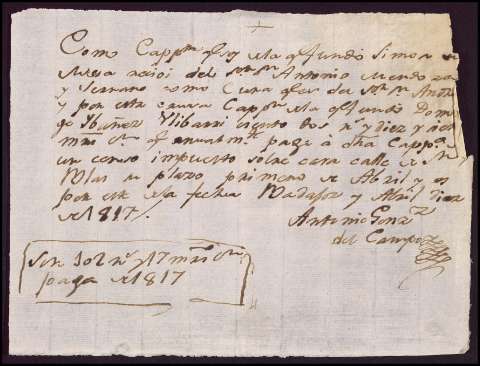 Como Cappn. q soy de la q fundó Simon de
Mesa recivi del Sor. Dn. Antonio Mendoza
y Serrano como Cura q es de Sn. Andr
y por esta causa Cappn. de la q fundó Domin
go Ybañez Ylibarri ciento dos rs. y diez y siete
mrs. vn. q anualmte. paga á dha Cappa.
un censo impuesto sobre casa calle de Sn.
Blas su plazo primero de Abril y es
por este de la fecha Badajoz y Abril diez
de 1817.
Antonio Gonz
del Campo
Son 102 rs. y 17 mrs. vn.
paga de 1817